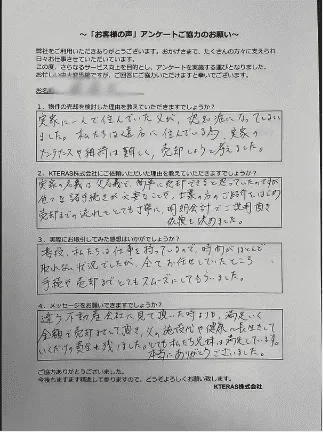 ～「お客様の声」アンケートご協力のお願い～
弊社をご利用いただきありがとうございます。おかげさまで、たくさんの方々に支えられ
日々お仕事させていただいています。
この度、さらなるサービス向上を目的とし、アンケートを実施する運びとなりました。
お忙しい中大変恐縮ですが、ご回答にご協力いただけますと幸いでございます。
お名前
1．物件の売却を検討した理由を教えていただきますでしょうか？
実家に一人で住んでいた父が、認知症になってしまい
ました。私たちは遠方に住んでいる為、実家の
メンテナンスや維持は難しく、売却しようと考えました。
2．KTERAS株式会社にご依頼いただいた理由を教えていただきますでしょうか？
実家の名義は父名義で、簡単に売却できると思っていたのですが
色々な諸手続きが必要なことや、士業の方のご紹介をはじめ
売却までの流れをとても丁寧に、明朗会計でご説明頂き
依頼を決めました。
3．実際にお取引してみた感想はいかがでしょうか？
普段、私たちは仕事を持っているので、時間がほとんど
取れない状況でしたが、全てお任せしていたところ
手続や売却までとてもスムーズにしてもらいました。
4．メッセージをお願いできますでしょうか？
違う不動産会社に見て頂いた時よりも、満足いく
金額で売却させて頂き、父の施設代や健康に長生きして
いくだけの資金も残りました。とても私たち兄妹は満足している
本当にありがとうございました。
ご協力ありがとうございました。
今後もますます精進して参りますので、どうぞよろしくお願い致します。
KTERAS株式会社